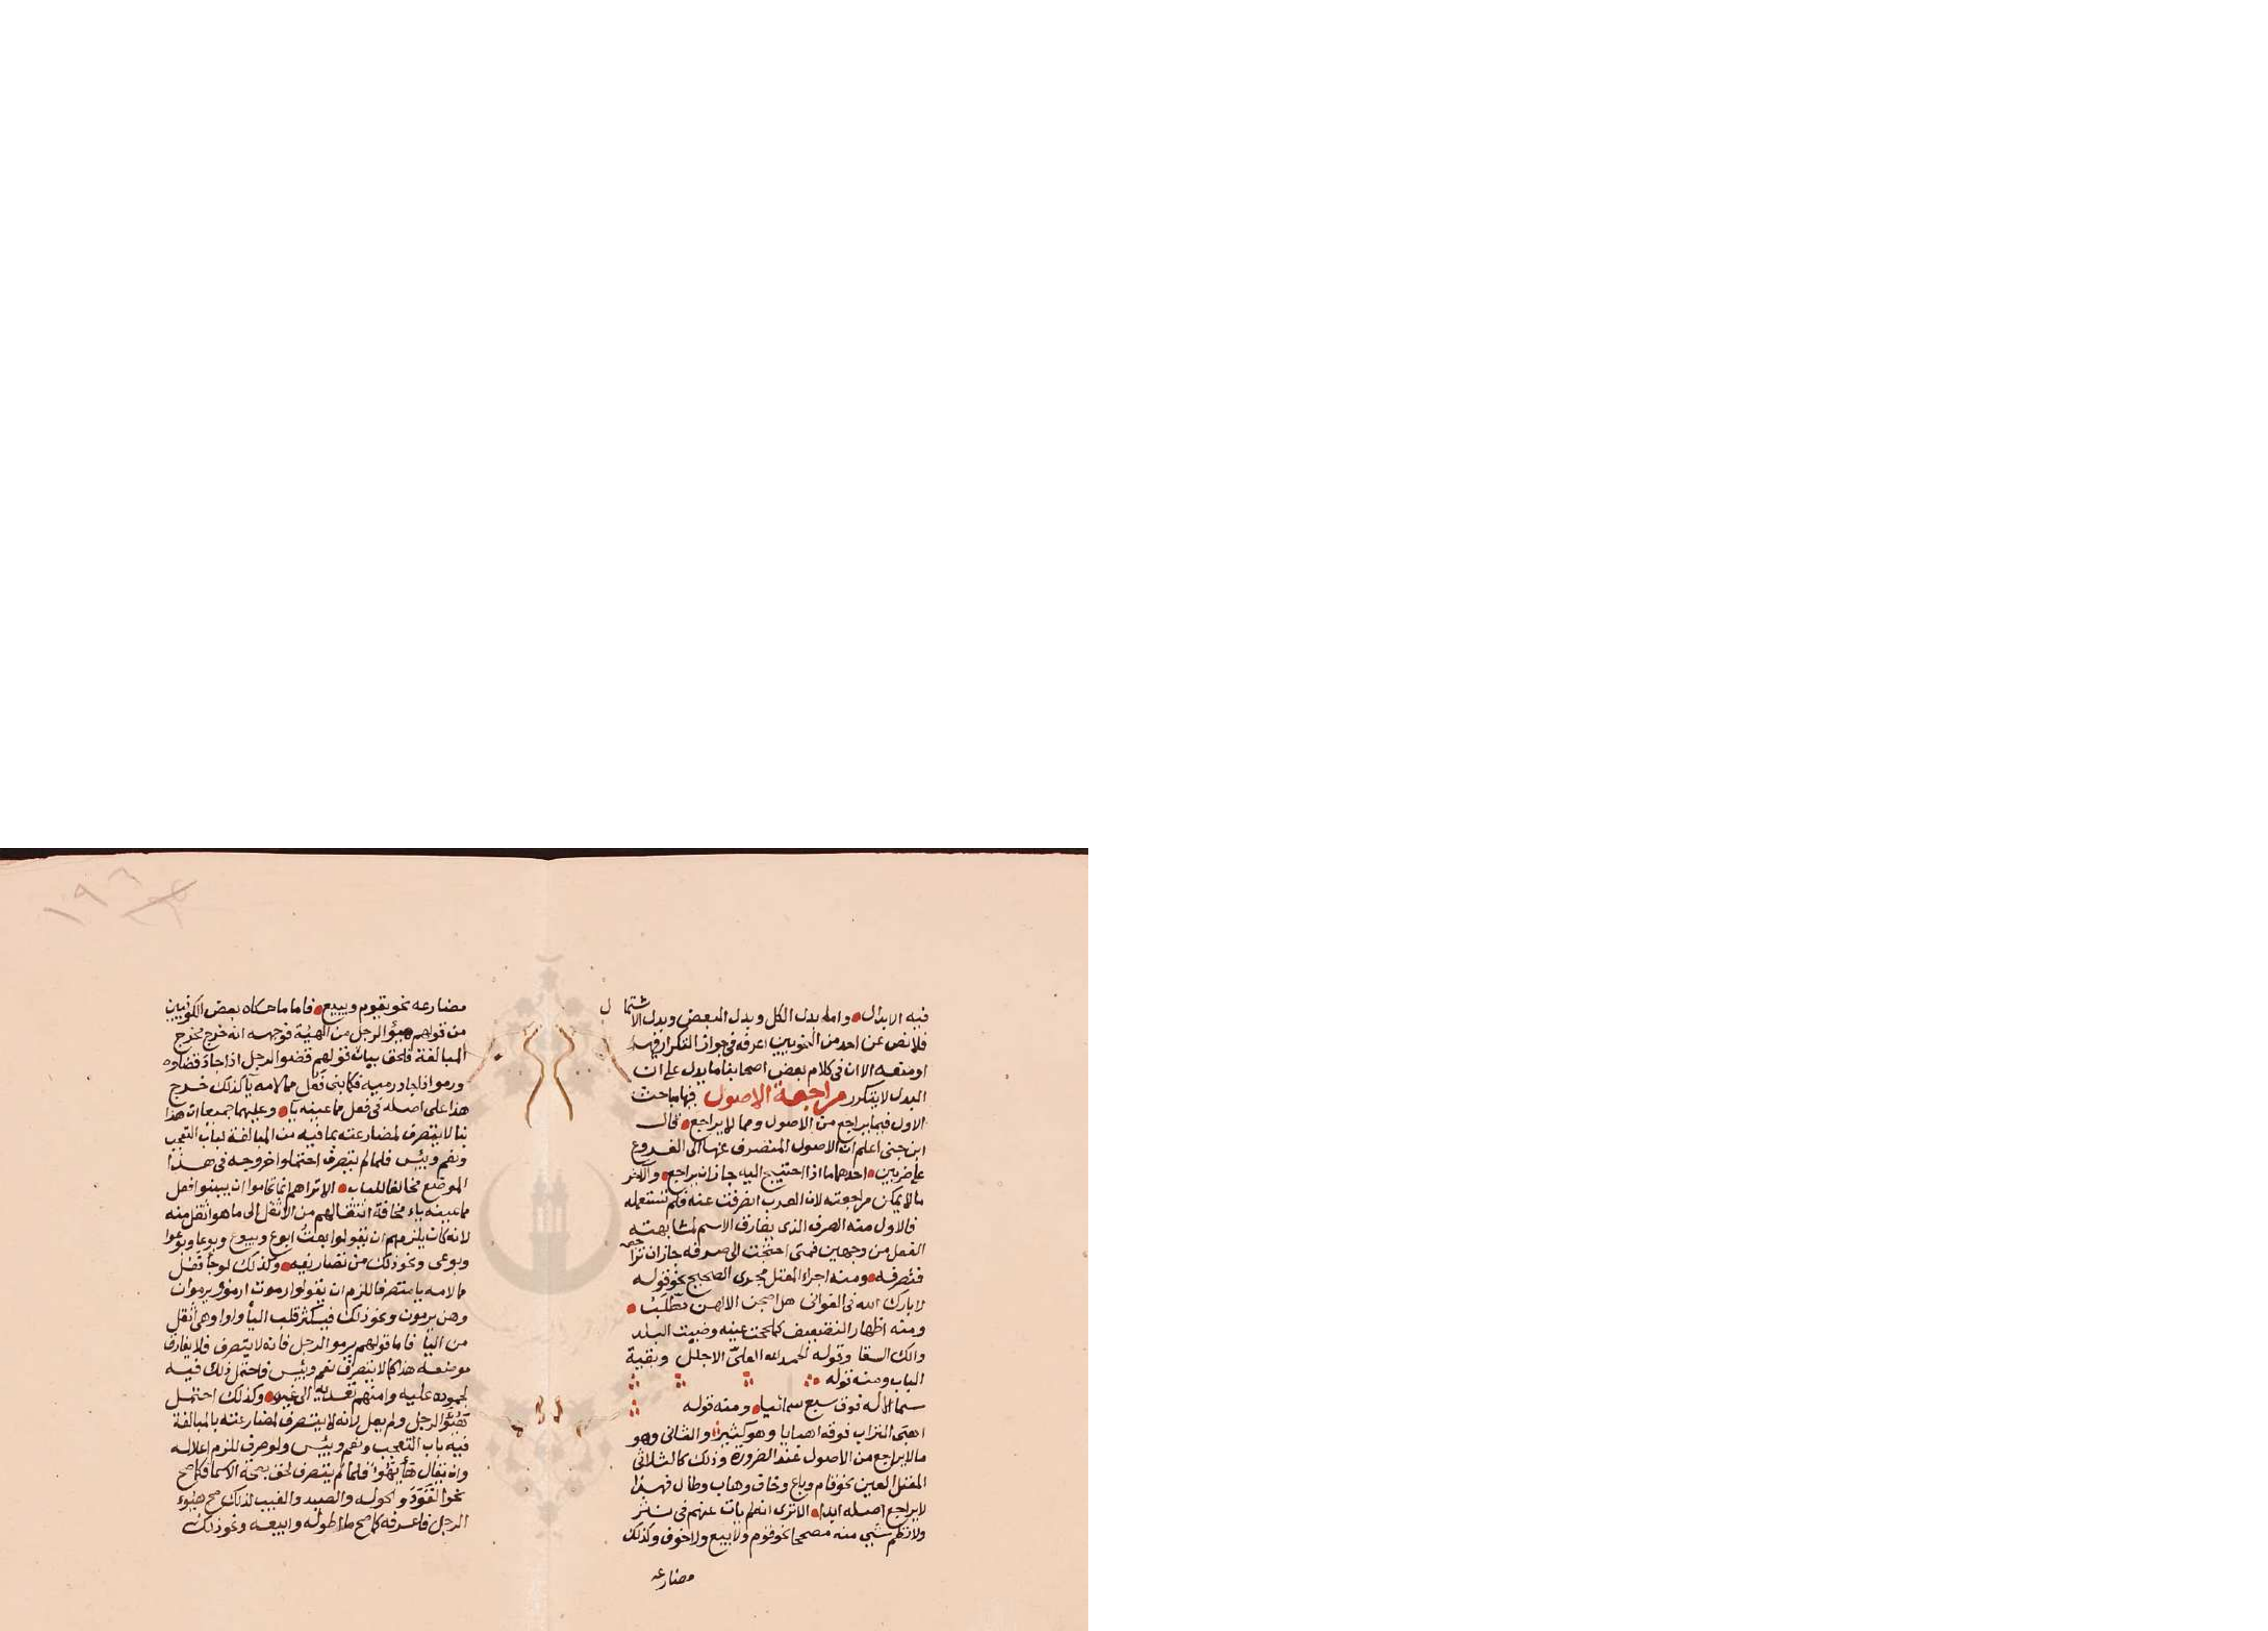 فيه الابدال وامله بدل الكل وبدل البعض وبدل الاشتمال
فلا نص عن احد من النحويين اعرفه فى جواز التكرار فيها
او منعه الا ان فى كلام بعض اصحابنا ما يدل على ان
البدل لا يتكرر مراجعة الاصول فيها مباحث
الاول فيما يراجع من الاصول ومما لا يراجع قال
ابن جنى اعلم ان الاصول المنصرف عنها الى الفروع
على ضربين احدهما ما اذا احتيج اليه جاز ان يراجع والاخر
ما لا يمكن مراجعته لان العرب انصرفت عنه فلم تستعمله
فالاول منه الصرف الذى يفارق الاسم لمشابهته
الفعل من وجهين فمتى احتجت الى صرفه جاز ان تراجعه
فتصرفه ومنه اجراء المعتل مجرى الصحيح نحو قوله
لا بارك الله فى الغوانى هل اصبحن الا لهن مطلب
ومنه اظهار التضعيف كلححت عينه وضببت البلد
والك السقا وقوله الحمد لله العلى الاجلل وبقية
الباب ومنه قوله
سما الاله فوق سبع سمائيا ومنه قوله
اهبى التراب فوقه اهبايا وهو كثير والثانى وهو
ما لا يراجع من الاصول عند الضرورة وذلك كالثلاثى
المعتل العين نحو قام وباع وخاف وهاب وطال فهذا
لا يراجع اصله ابدا الا ترى انه لم يات عنهم فى نثر
ولا نظم شيى منه مصححا نحو قوم ولا بيع ولا خوف وكذلك
مضارعه
١٩٦
مضارعه نحو يقوم ويبيع فاما ما حكاه بعض الكوفيين
من قولهم هيؤ الرجل من الهيئة فوجهه انه خرج مخرج
المبالغة فلحق بباب قولهم قضو الرجل اذا جاد قضاوه
ورمو اذا جاد رميه فكما بنى فعل مما لامه يا كذلك خرج
هذا على اصله فى فعل مما عينه يا وعليهما جميعا ان هذا
بنا لا يتصرف لمضارعته بما فيه من المبالغة لباب التعجب
ونعم وبئس فلما لم يتصرف احتملوا خروجه فى هذا
الموضع مخالفا للباب الا تراهم انما تحاموا ان يبنوا فعل
مما عينه ياء مخافة انتقالهم من الاثقل الى ما هو اثقل منه
لانه كان يلزمهم ان يقولوا بعت ابوع وبيوع وبوعا وبوعوا
وبوعى ونحو ذلك من تصاريفه وكذلك لو جا فعل
مما لامه يا متصرفا للزم ان يقولوا رموت ارمو ويرموان
وهن يرمون ونحو ذلك فيكثر قلب اليا واوا وهى اثقل
من اليا فاما قولهم رمو الرجل فانه لا يتصرف فلا يفارق
موضعه هذا كما لا يتصرف نعم وبئس فاحتمل ذلك فيه
لجموده عليه وامنهم تعديه الى غيره وكذلك احتمل
هيؤ الرجل ولم يعل لانه لا يتصرف لمضارعته بالمبالغة
فيه باب التعجب ونعم وبئس ولو صرف للزم اعلاله
وان يقال هاء يهوء فلما لم يتصرف لحق بصحة الاسما فكما صح
نحو القود والحوله والصيد والغيب لذلك صح هيؤ
الرجل فاعرفه كما صح ما اطوله وابيعه ونحو ذلك